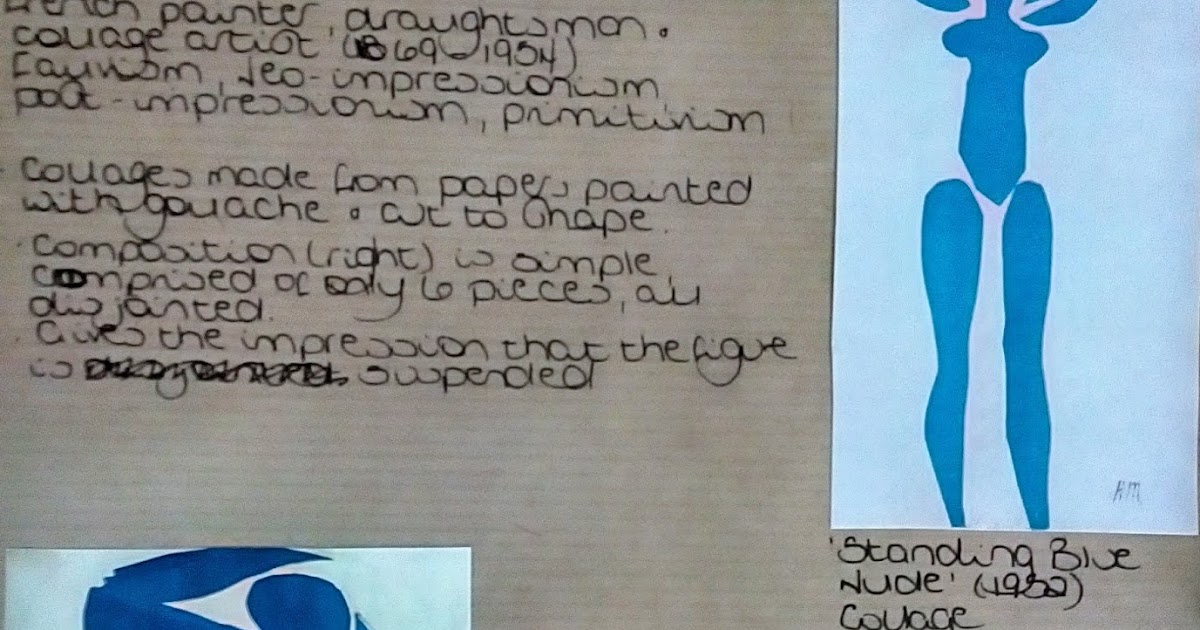 French painter, draughtsman.
collage artist (1869-1954)
Fauvism, Neo-impressionism
post-impressionism, primitivism
collages made from papers painted
with gouache. cut to shape.
· Composition (right) is simple
comprised of only 6 pieces, all
disjointed.
· Gives the impression that the figure
is suspended
HM
'Standing Blue
Nude' (1952)
Collage